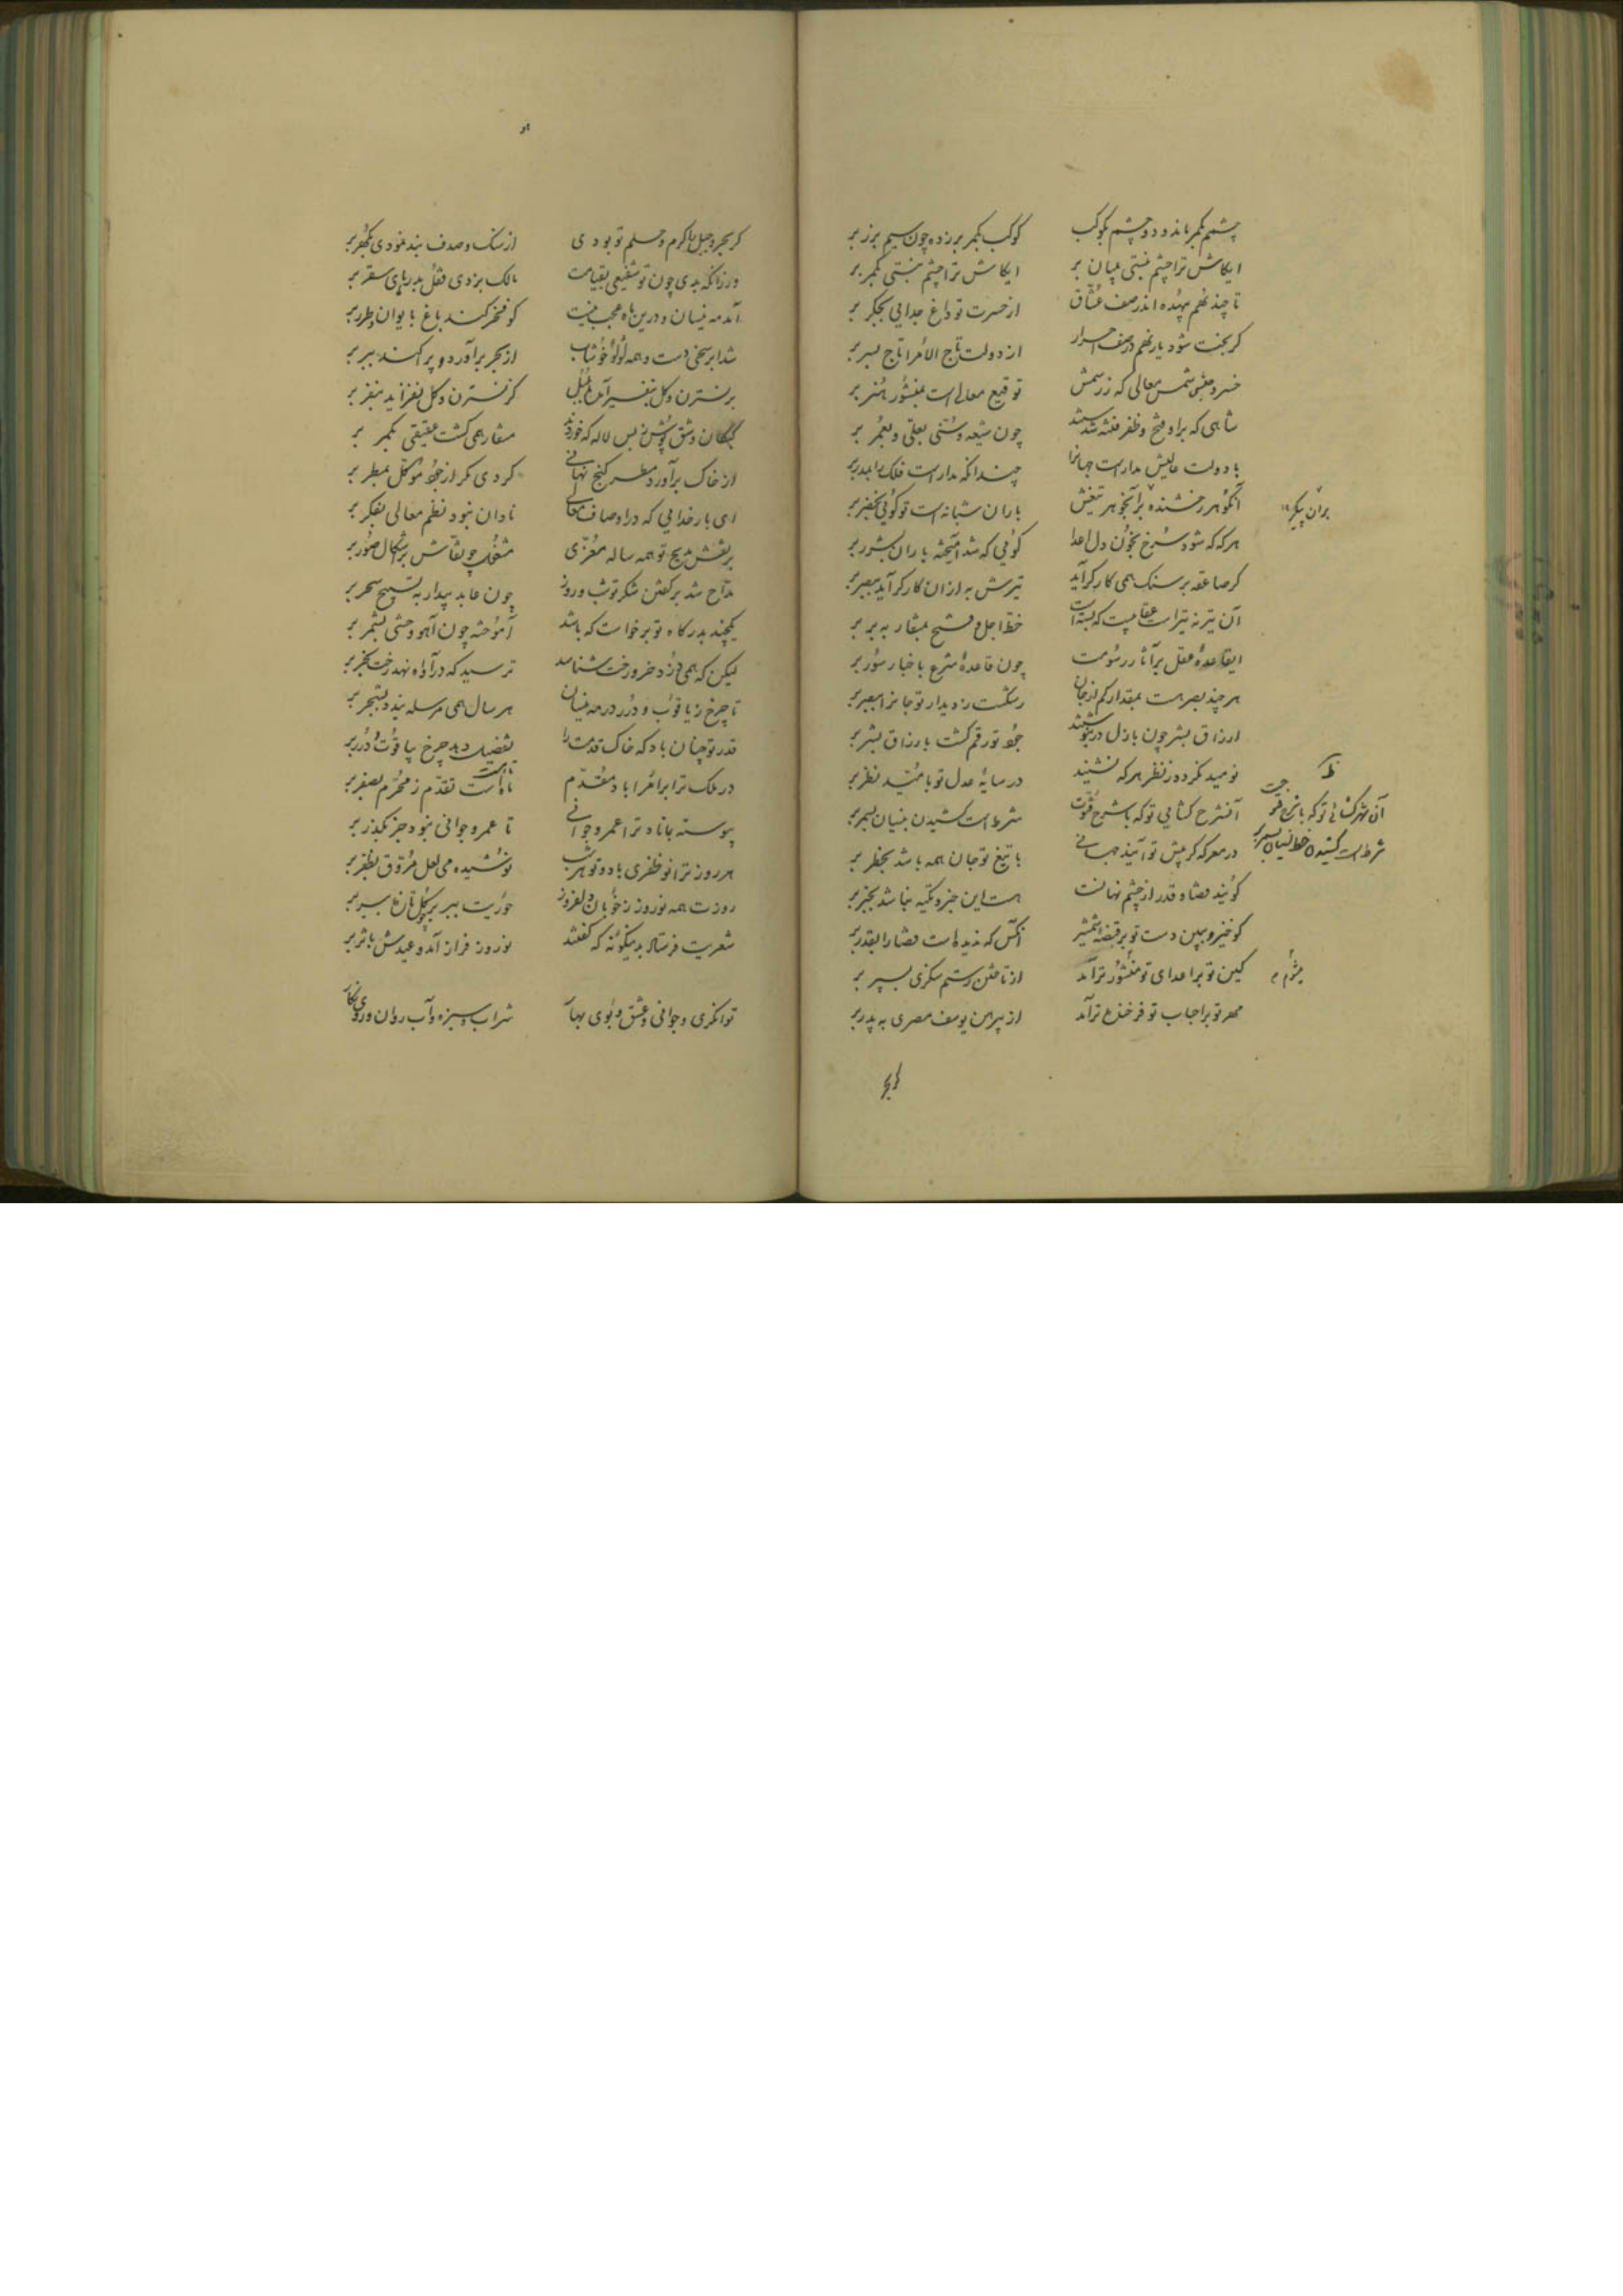 چشمم بکمر ماند و دو چشمم بکوکب کوکب بکمر بر زده چون سیم بزر بر
ایکاش ترا چشم نبستی بمیان بر ایکاش ترا چشم نبستی بکمر بر
تا چند نهم بیهده اندر صف عشاق از حسرت تو داغ جدایی بجگر بر
گر بخت شود یار نهم در صف احرار از دولت تاج الامرا تاج بسر بر
خسرو شمس معالی که ز رسمش توقیع معالی است بمنشور هنر بر
شاهی که بر او فتح و ظفر فتنه شدستند چون شیعه و سنی بعلی و بعمر بر
با دولت عالیش مدار است جهانرا چندانکه مدار است فلک را بمدر بر
آن گوهر رخشنده بر آن جوهر تیغش باران شبانه است تو گوئی بخضر بر
بران پیکر
هرگه که شود سرخ بخون دل اعدا گوئی که شد آمیخته باران بشرر بر
گر صاعقه بر سنک همی کارگر آید تیرش به از آن کارگر آید ببصر بر
آن تیر نه تیر است عقابیست که بسته است خط اجل و فتح بمنقار به بر بر
ایقاعده عقل بر آثار رسومت چون قاعده شرع باخبار سور بر
هر چند بصر هست بمقدار کم از جان رشکست ز دیدار تو جانرا ببصر بر
ارزاق بشر چون بازل در بنوشتند جود تو رقم گشت بارزاق بشر بر
نومید نکردد ز نظر هر که نشیند در سایه عدل تو بامید نظر بر
آن شرح کشایی تو که با شرح قوت شرط است کشیدن بنسیان بسمر بر
آن شهر کشائی تو که با
شرط است کشیدن خط نسیان بسیر بر
در معرکه گر پیش تو آیند جهانی با تیغ تو جان همه باشد بخطر بر
گویند قضا و قدر از چشم نهانست هست این خبر و تکیه نباشد بخبر بر
گو خیز و ببین دست تو بر قبضه شمشیر آنکس که ندیده است قضا را بقدر بر
کین تو بر اعدای تو منشور تر آمد از تاختن رستم سکزی بپسر بر
میشوم
مهر تو بر احباب تو فرخنده تر آمد از پیرهن یوسف مصری به پدر بر
گر بحر
گر بحر و جبل با کرم و حلم تو بودی از سنک و صدف بند نبودی بگهر بر
ور زانکه بدی چون تو شفیعی بقیامت مالک بزدی قفل بدرهای سقر بر
آمد مه نیسان و درین ماه عجب نیست گو فخر کند باغ بایوان و طرر بر
شد ابر سخی دست و همه لؤلؤ خوشاب از بحر برآورد و پراکند ببر بر
بر نسترن و گل بتغیر آمد بلبل کز نسترن و گل نغز آید بنغز بر
کبکان دشتی پوش ز بس لاله که خوردند منقار همی گشت عقیقی بکمر بر
از خاک برآورد مطر گنج نهانی کردی مگر از جود موکل بمطر بر
ای بار خدایی که در اوصاف معالی نادان نبود نظم معالی بفکر بر
بر نقش مدیح تو همه ساله معزی مشغول چو نقاش بر اشکال صور بر
مداح شد بر گفتن شکر تو شب و روز چون عابد بیدار به تسبیح سحر بر
یکچند بدرگاه تو بر خواست که باشد آموخته چون آهو وحشی بشمر بر
لیکن که همی دزد خر و رخت شناسد ترسید که در آواه نهد رخت بخر بر
تا چرخ ز یاقوت و درر در مه نیسان هر سال همی مرسله بندد بشجر بر
قدر تو چنان باد که خاک قدمت را تفضیل دهد چرخ بیاقوت و درر بر
در ملک ترا بر امرا باد مقدم تا هست تقدم ز محرم بصفر بر
پیوسته بماناد ترا عمر و جوانی تا عمر و جوانی نبود جز بگذر بر
هر روز ترا نو ظفری باد و تو هر شب نوشیده می لعل مروق بظفر بر
روزت همه نوروز ز خوبان دلفروز حوریت ببر بر گل تازه بسر بر
شعریت فرستاده بدینگونه که گفتند نوروز فراز آمد و عیدش باثر بر
توانگری و جوانی و عشق و بوی بهار شراب و سبزه و آب روان و روی نگار